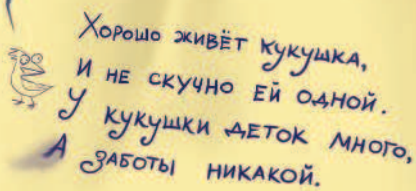 Хорошо живёт кукушка,
И не скучно ей одной.
У кукушки деток много,
А заботы никакой.